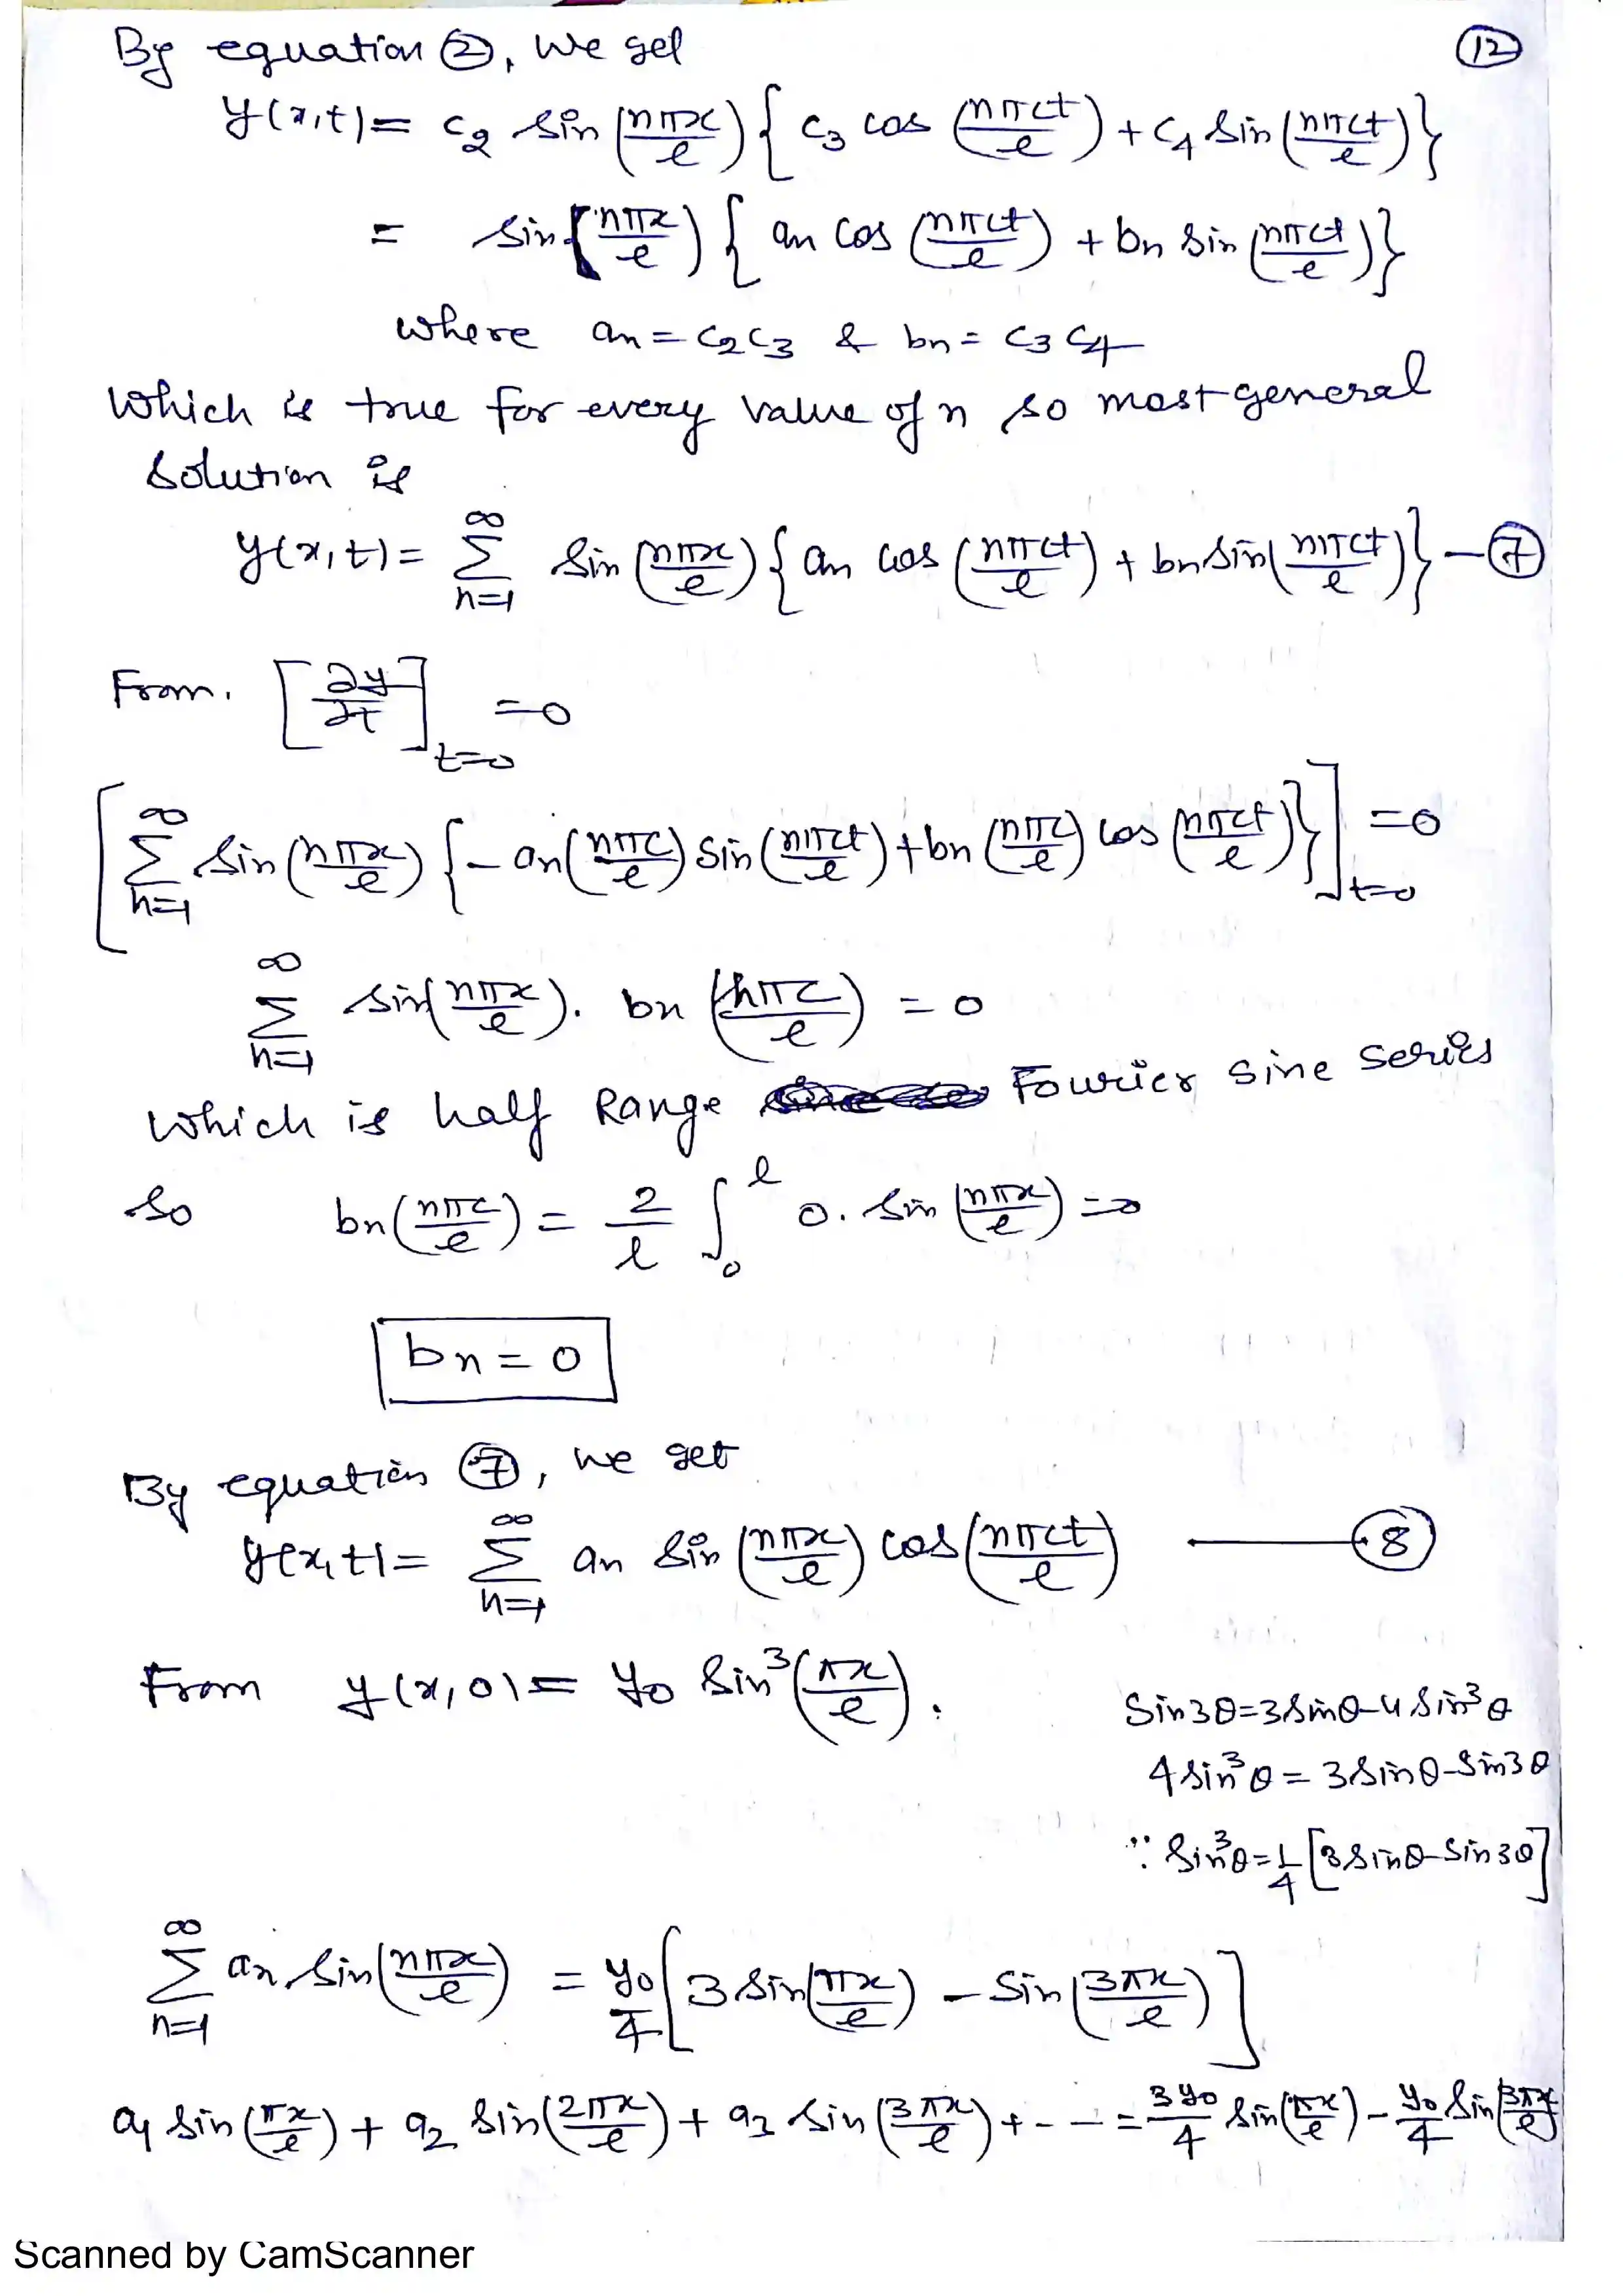 By equation ②, we get
⑫
y(x,t) = c₂ sin (nπx/l) { c₃ cos (nπct/l) + c₄ sin (nπct/l)}
= sin (nπx/l) { an cos (nπct/l) + bn sin (nπct/l)}
where an = c₂c₃ & bn = c₃c₄
which is true for every value of n so most general
solution is
y(x,t) = ∞ Σ n=1 sin (nπx/l) { an cos (nπct/l) + bn sin (nπct/l)} — ⑦
From. [∂y/∂t] t=0 = 0
[ ∞ Σ n=1 sin (nπx/l) { - an (nπc/l) sin (nπct/l) + bn (nπc/l) cos (nπct/l)}] t=0 = 0
∞ Σ n=1 sin (nπx/l). bn (nπc/l) = 0
which is half Range Fourier sine series
so bn (nπc/l) = 2/l ∫₀ˡ 0. sin (nπx/l) = 0
bn = 0
By equation ⑦, we get
y(x,t) = ∞ Σ n=1 an sin (nπx/l) cos (nπct/l) — ⑧
From y(x,0) = y₀ sin³ (πx/l).
sin3θ = 3sinθ - 4 sin³θ
4 sin³θ = 3 sinθ - sin3θ
∵ sin³θ = 1/4 [3 sinθ - sin3θ]
∞ Σ n=1 an sin (nπx/l) = y₀/4 [3 sin (πx/l) - sin (3πx/l)]
a₁ sin (πx/l) + a₂ sin (2πx/l) + a₃ sin (3πx/l) + - - = 3y₀/4 sin (πx/l) - y₀/4 sin (3πx/l)
Scanned by CamScanner